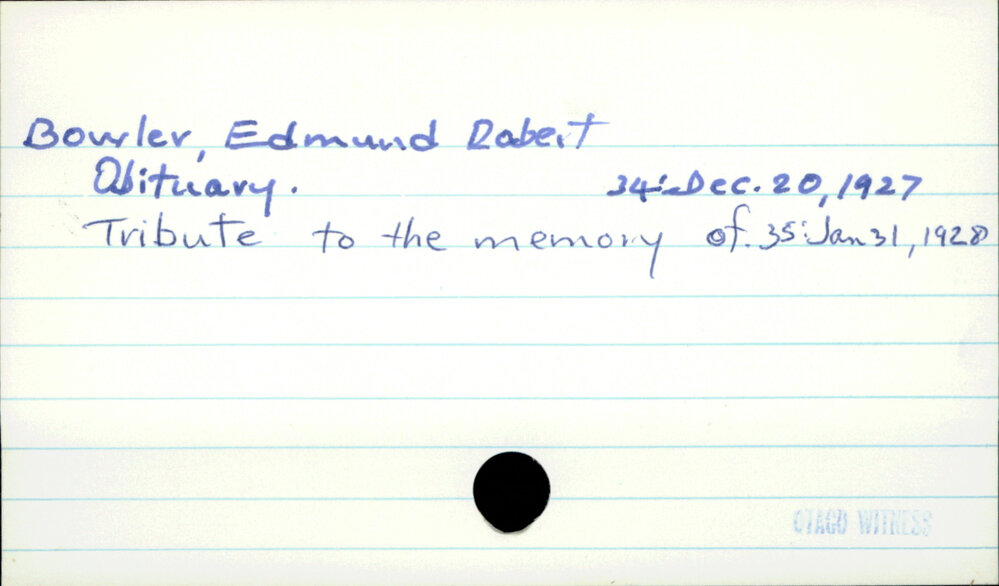 Bowler, Edmund Robert
Obituary. 34:Dec. 20, 1927
Tribute to the memory of. 35:Jan 31, 1928
OTAGO WITNESS